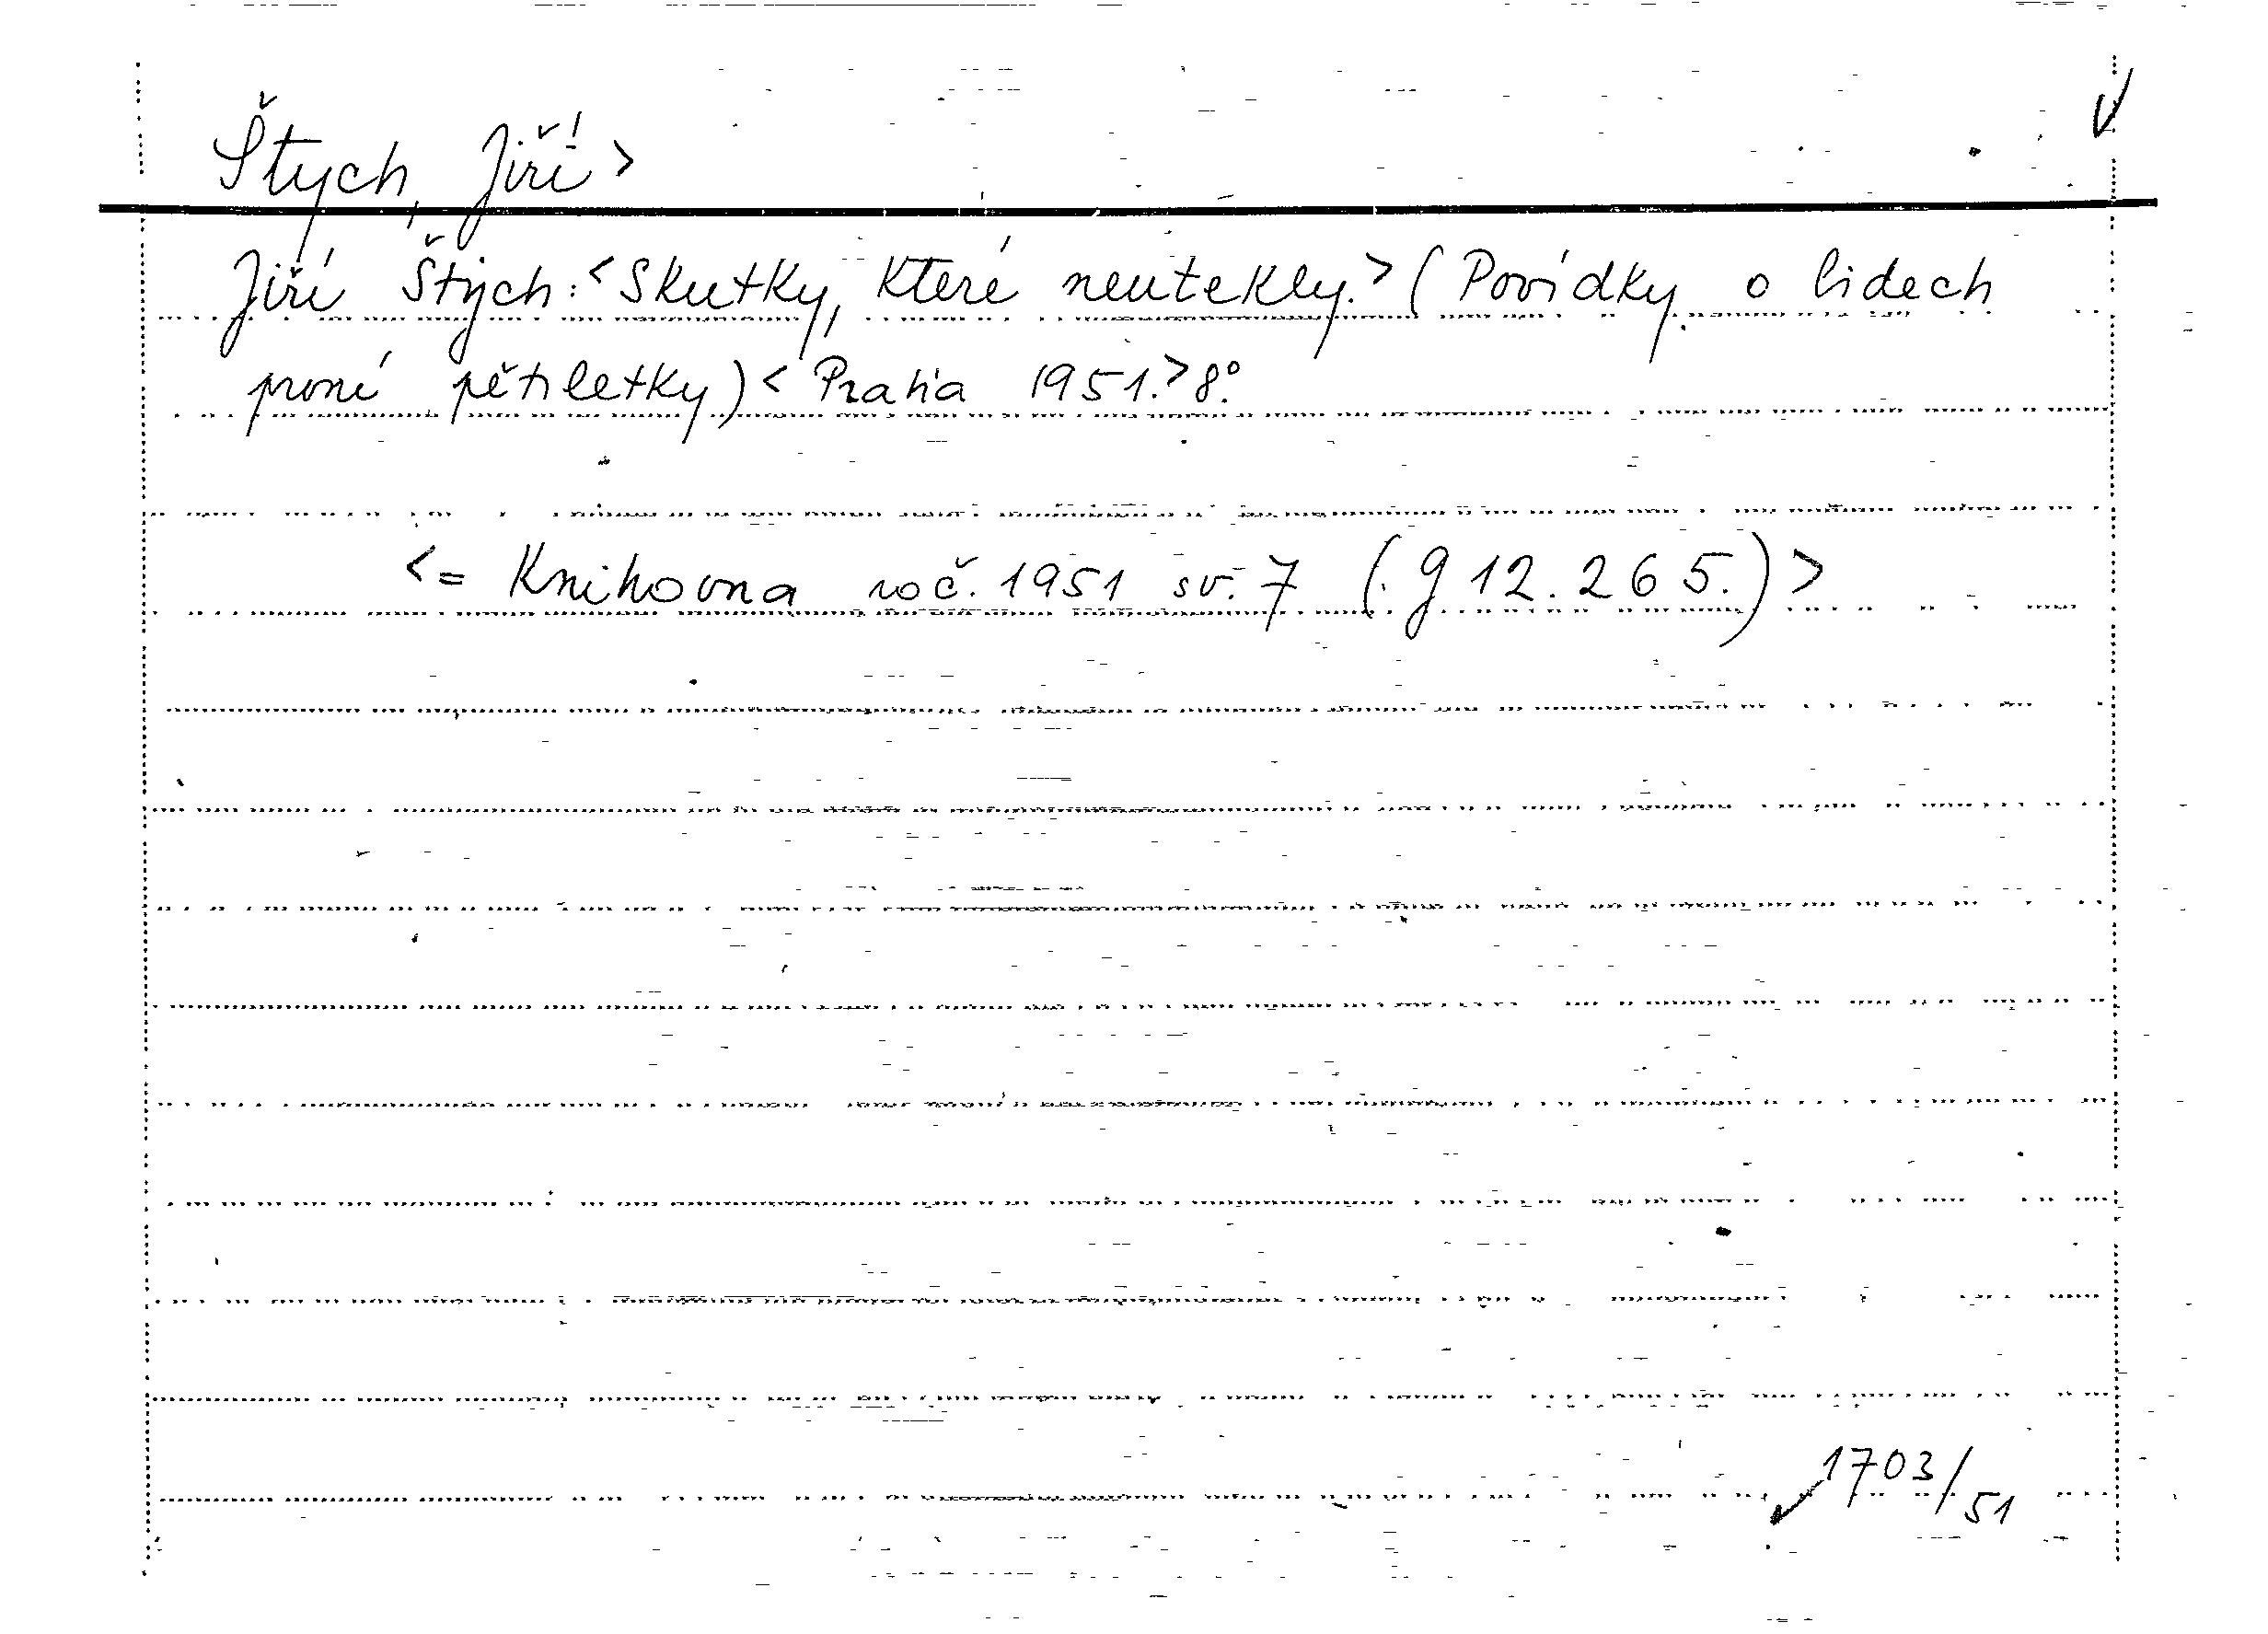 Štych, Jiří >
Jiří Štých: < Skutky, které neutekly. > (Povídky o lidech
první pětiletky) < Praha 1951. > 8°.
< = Knihovna roč. 1951 sv. 7 (. g 12.265.) >
1703/51